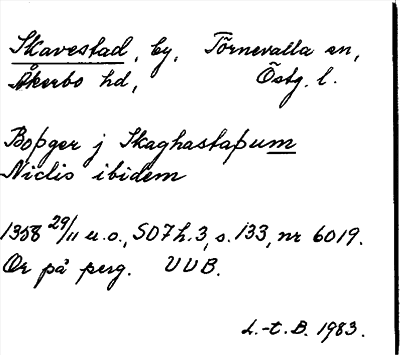 Skavestad, by, Törnevalla sn,
Åkerbo hd, Östg. l.
Boþger j Skaghastaþum
Niclis ibidem
1358 29/11 u.o., SD 7 h. 3, s. 133, nr 6019.
Or på perg. UUB.
L.-t. B. 1983.